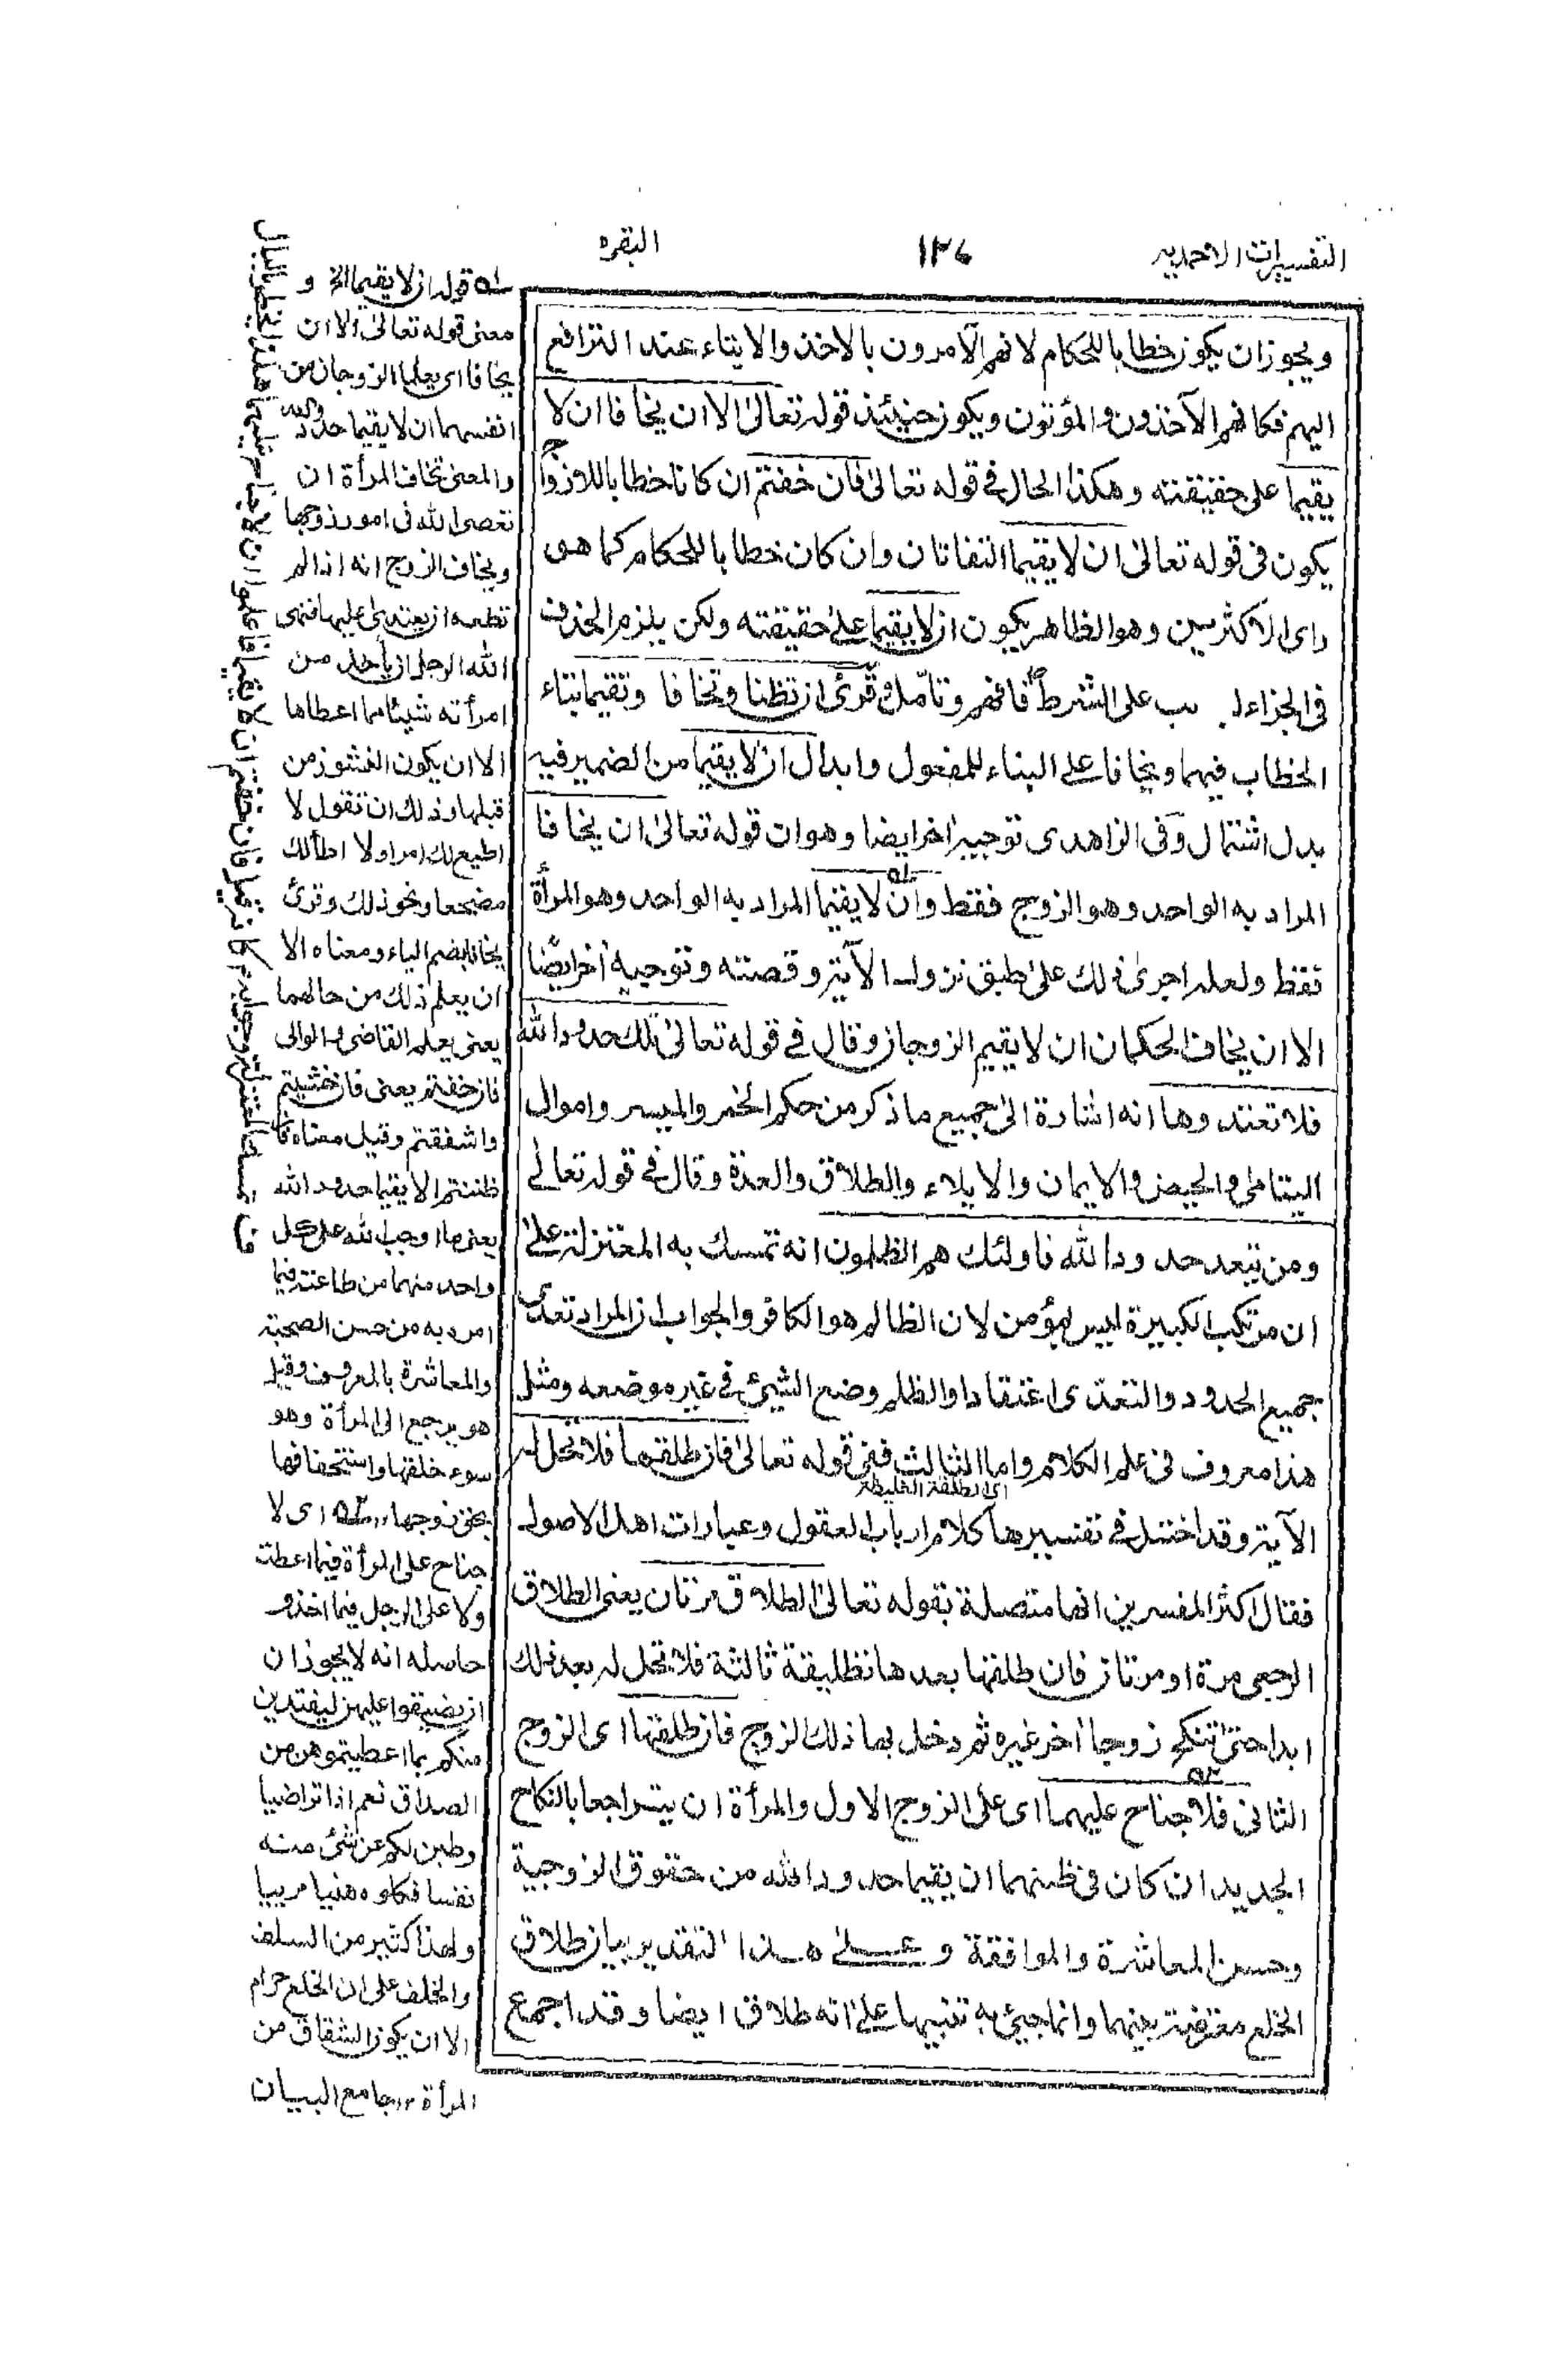 التفسيرات الاحمدية
١٣٦
البقره
ويجوز ان يكون خطابا للحكام لانهم الآمرون بالاخذ والايتاء عند الترافع
اليهم فكانهم الآخذون والمؤتون ويكون حينئذ قوله تعالى الا ان يخافا ان لا
يقيما على حقيقته وهكذا الحال فى قوله تعالى فان خفتم ان كانا خطابا للازواج
يكون فى قوله تعالى ان لا يقيما التفاتان وان كان خطابا للحكام كما هو
راى الاكثرين وهو الظاهر يكون ان لا يقيما على حقيقته ولكن يلزم الحذف
فى الجزاء على الشرط فافهم وتامل و قرئ ان تظنا وتخافا وتقيما بتاء
الخطاب فيهما ويخافا على البناء للمفعول وابدال ان لا يقيما من الضمير فيه
بدل اشتمال وفى الزاهدى توجيه اخر ايضا وهو ان قوله تعالى ان يخافا
المراد به الواحد وهو الزوج فقط وان لا يقيما المراد به الواحد وهو المرأة
فقط ولعله اجرى ذلك على طبق نزول الآية وقصته وتوجيه أخر ايضًا
الا ان يخاف الحكمان ان لا يقيم الزوجان وقال فى قوله تعالى تلك حدود الله
فلا تعتدوها انه اشارة الى جميع ما ذكر من حكم الخمر والميسر واموال
اليتامى والحيض والايمان والايلاء والطلاق والعدة وقال فى قوله تعالى
ومن يتعد حدود الله فاولئك هم الظلمون انه تمسك به المعتزلة على
ان مرتكب الكبيرة ليس بمؤمن لان الظالم هو الكافر والجواب ان المراد تعدى
جميع الحدود والتعدى اعتقادا والظلم وضع الشيئ فى غير موضعه ومثل
هذا معروف فى علم الكلام واما الثالث ففى قوله تعالى فان طلقها فلا تحل له
اى الطلقة الغليظة
الآية وقد اختل فى تفسيرها كلام ارباب العقول وعبارات اهل الاصول
فقال اكثر المفسرين انها متصلة بقوله تعالى الطلاق مرتان يعنى الطلاق
الرجعى مرة او مرتان فان طلقها بعدها تطليقة ثالثة فلا تحل له بعد ذلك
ابدا حتى تنكح زوجا أخر غيره ثم دخل بها ذلك الزوج فان طلقها اى الزوج
الثانى فلا جناح عليهما اى على الزوج الاول والمرأة ان يتراجعا بالنكاح
الجديد ان كان فى ظنهما ان يقيما حدود الله من حقوق الزوجية
وحسن المعاشرة والموافقة وعلى هذا التقدير بيان طلاق
الخلع معترضة بينهما وانما جيئ به تنبيها على انه طلاق ايضا وقد اجمع
له قوله ان لا يقيما الخ و
معنى قوله تعالى الا ان
يخافا اى يعلما الزوجان من
انفسهما ان لا يقيما حدود الله
والمعنى تخاف المرأة ان
تعصى الله فى امور زوجها
ويخاف الزوج انه اذا لم
تطعه ان يعتدى عليها فنهى
الله الرجل ان يأخذ من
امرأته شيئا مما اعطاها
الا ان يكون النشوز من
قبلها وذلك ان تقول لا
اطيع لك امرا ولا اطألك
مضجعا ونحو ذلك وقرئ
يخافا بضم الياء ومعناه الا
ان يعلم ذلك من حالهما
يعنى يعلم القاضى والوالى
فان خفتم يعنى فان خشيتم
واشفقتم وقيل معناه فان
ظننتم الا يقيما حدود الله
يعنى ما اوجب الله على كل
واحد منهما من طاعته فيما
امره به من حسن الصحبة
والمعاشرة بالمعروف وقيل
هو يرجع الى المرأة وهو
سوء خلقها واستخفافها
بحق زوجها ٢ه اى لا
جناح على المرأة فيما اعطت
ولا على الرجل فيما اخذ و
حاصله انه لا يجوز ان
ان يضيقوا عليهن ليفتدين
منكم بما اعطيتموهن من
الصداق نعم اذا تراضيا
وطبن لكم عن شئ منه
نفسا فكلوه هنيا مرييا
ولهذا كثير من السلف
والخلف على ان الخلع حرام
الا ان يكون الشقاق من
المرأة ١٢ جامع البيان